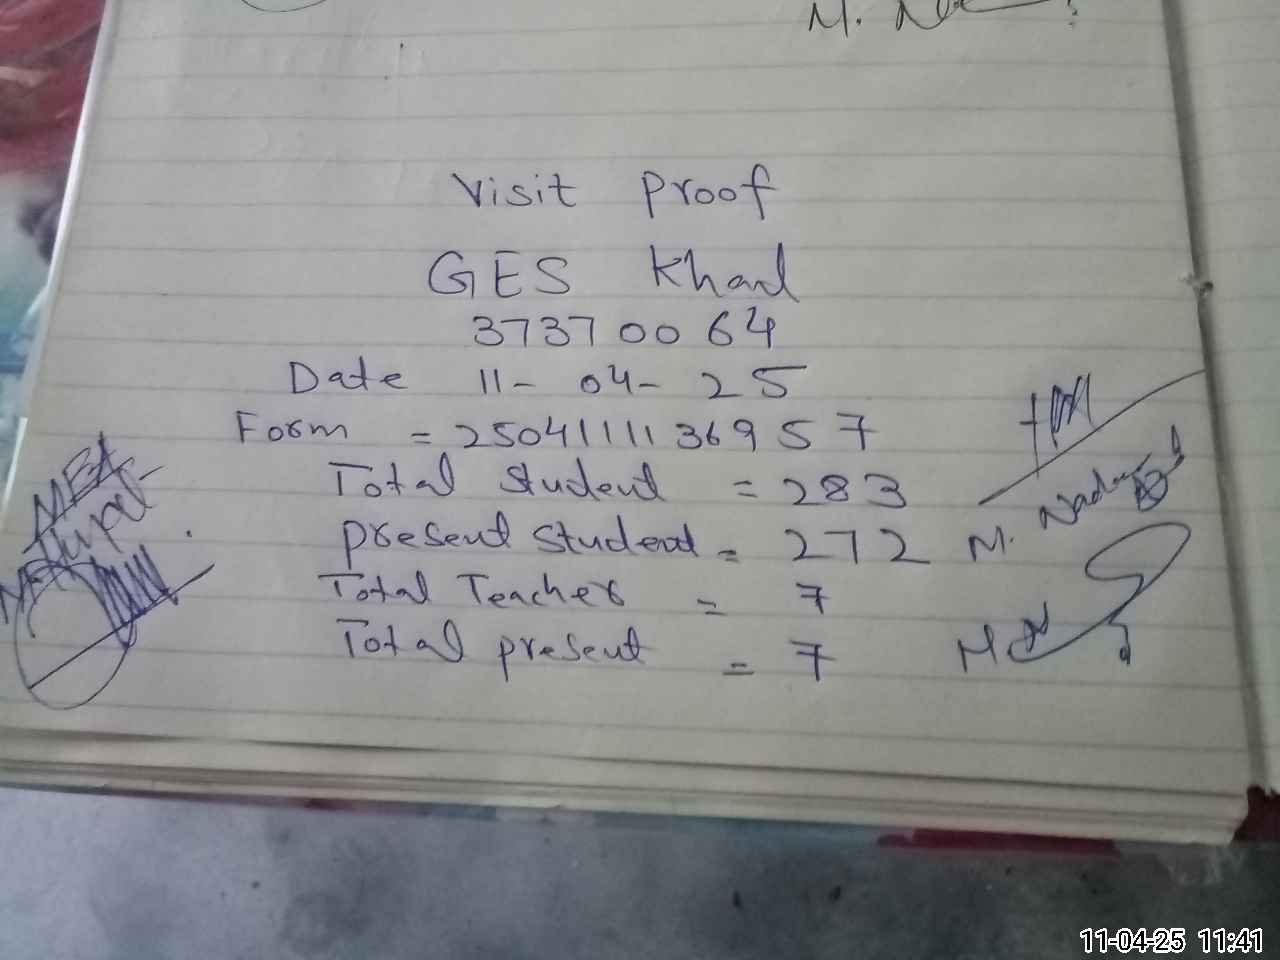 Visit Proof
GES Khard
37370064
Date 11-04-25
Form = 25041111136957
Total Student = 283
present Student = 272
Total Teacher = 7
Total present = 7
M.
11-04-25 11:41